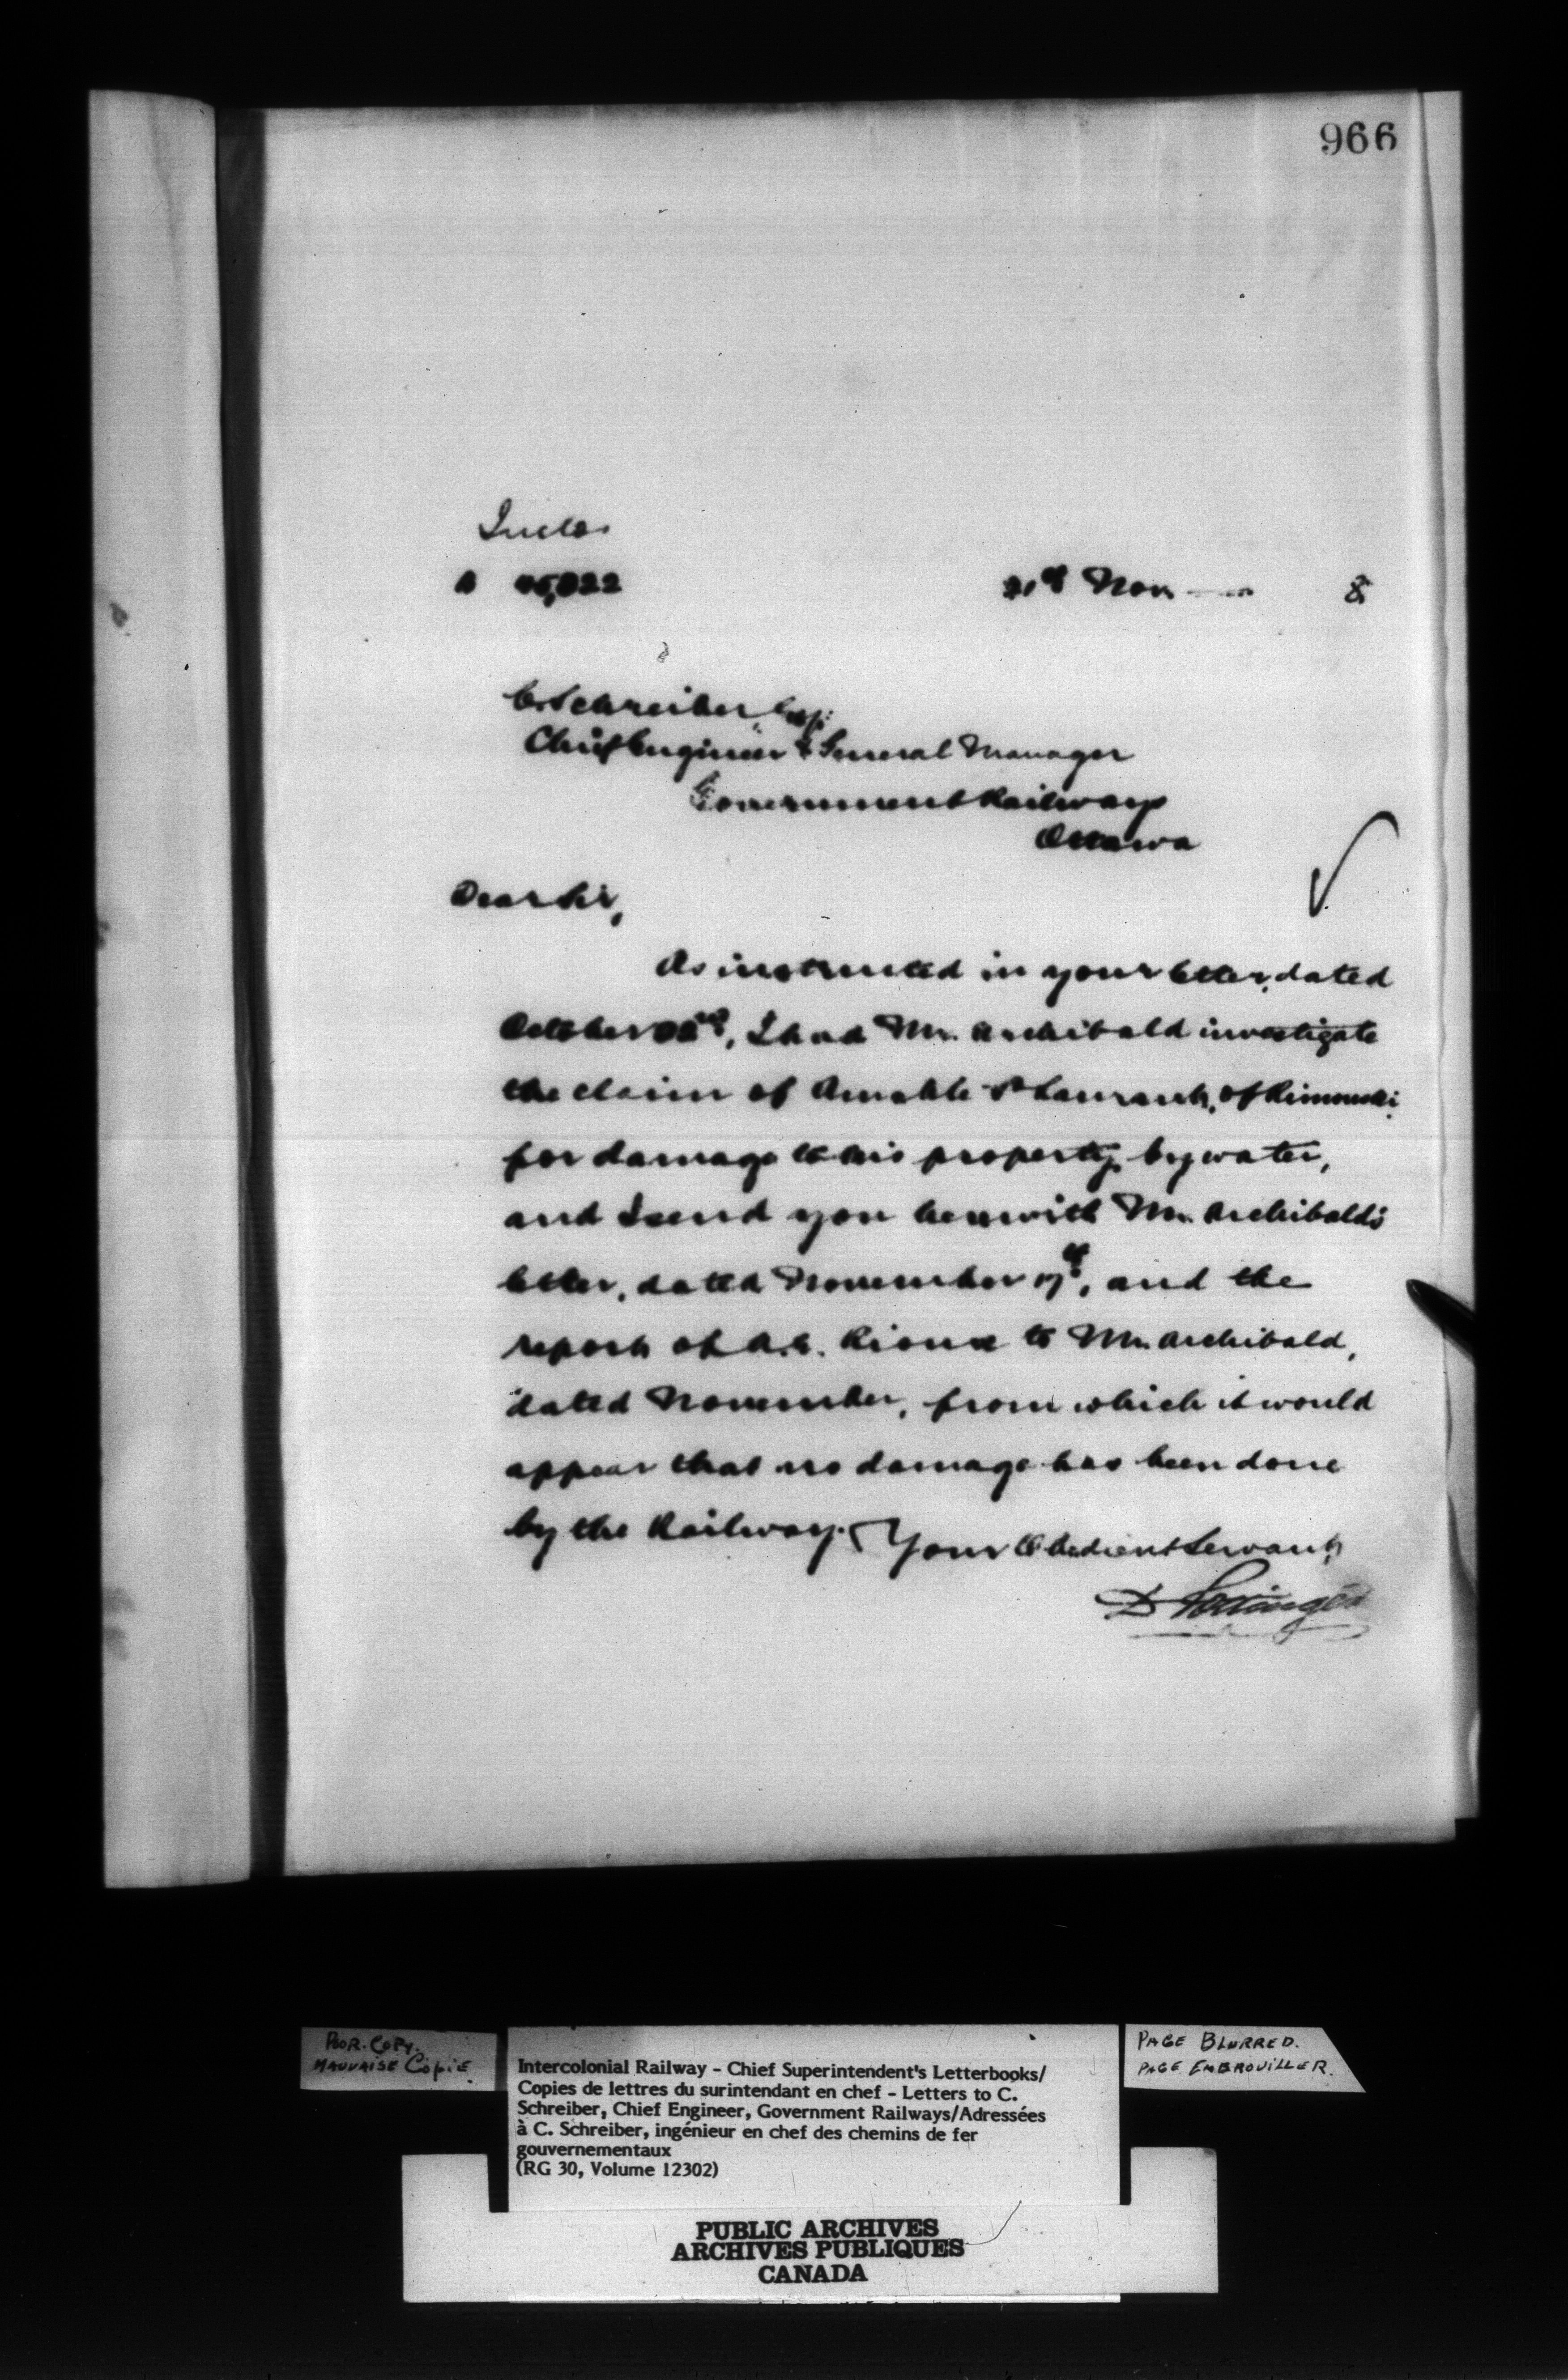 966
Inclo.
21st Nov 8
C. Schreiber Esq:
Chief Engineer & General Manager
Government Railways
Ottawa
Dear Sir,
As instructed in your letter, dated
October 22nd, I had Mr. Archibald investigate
the claim of Amable St Laurent, of Rimouski
for damage to his property by water,
and I send you herewith Mr. Archibald's
letter, dated November 17th, and the
report of A.R. Rioux to Mr. Archibald,
dated November, from which it would
appear that no damage has been done
by the Railway. Your Obedient Servant,
D Pottinger
POOR. COPY.
MAUVAISE COPIE.
Intercolonial Railway - Chief Superintendent's Letterbooks/
Copies de lettres du surintendant en chef - Letters to C.
Schreiber, Chief Engineer, Government Railways/Adressées
à C. Schreiber, ingénieur en chef des chemins de fer
gouvernementaux
(RG 30, Volume 12302)
PAGE BLURRED.
PAGE EMBROUILLER.
PUBLIC ARCHIVES
ARCHIVES PUBLIQUES
CANADA